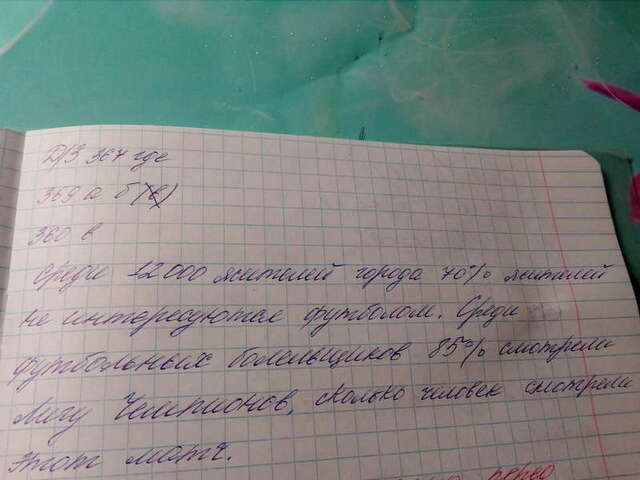 Д/З 367 где
369 а б (в)
360 в
Среди 12000 жителей города 70% жителей
не интересуются футболом. Среди
футбольных болельщиков 85% смотрели
Лигу Чемпионов, сколько человек смотрели
этот матч.